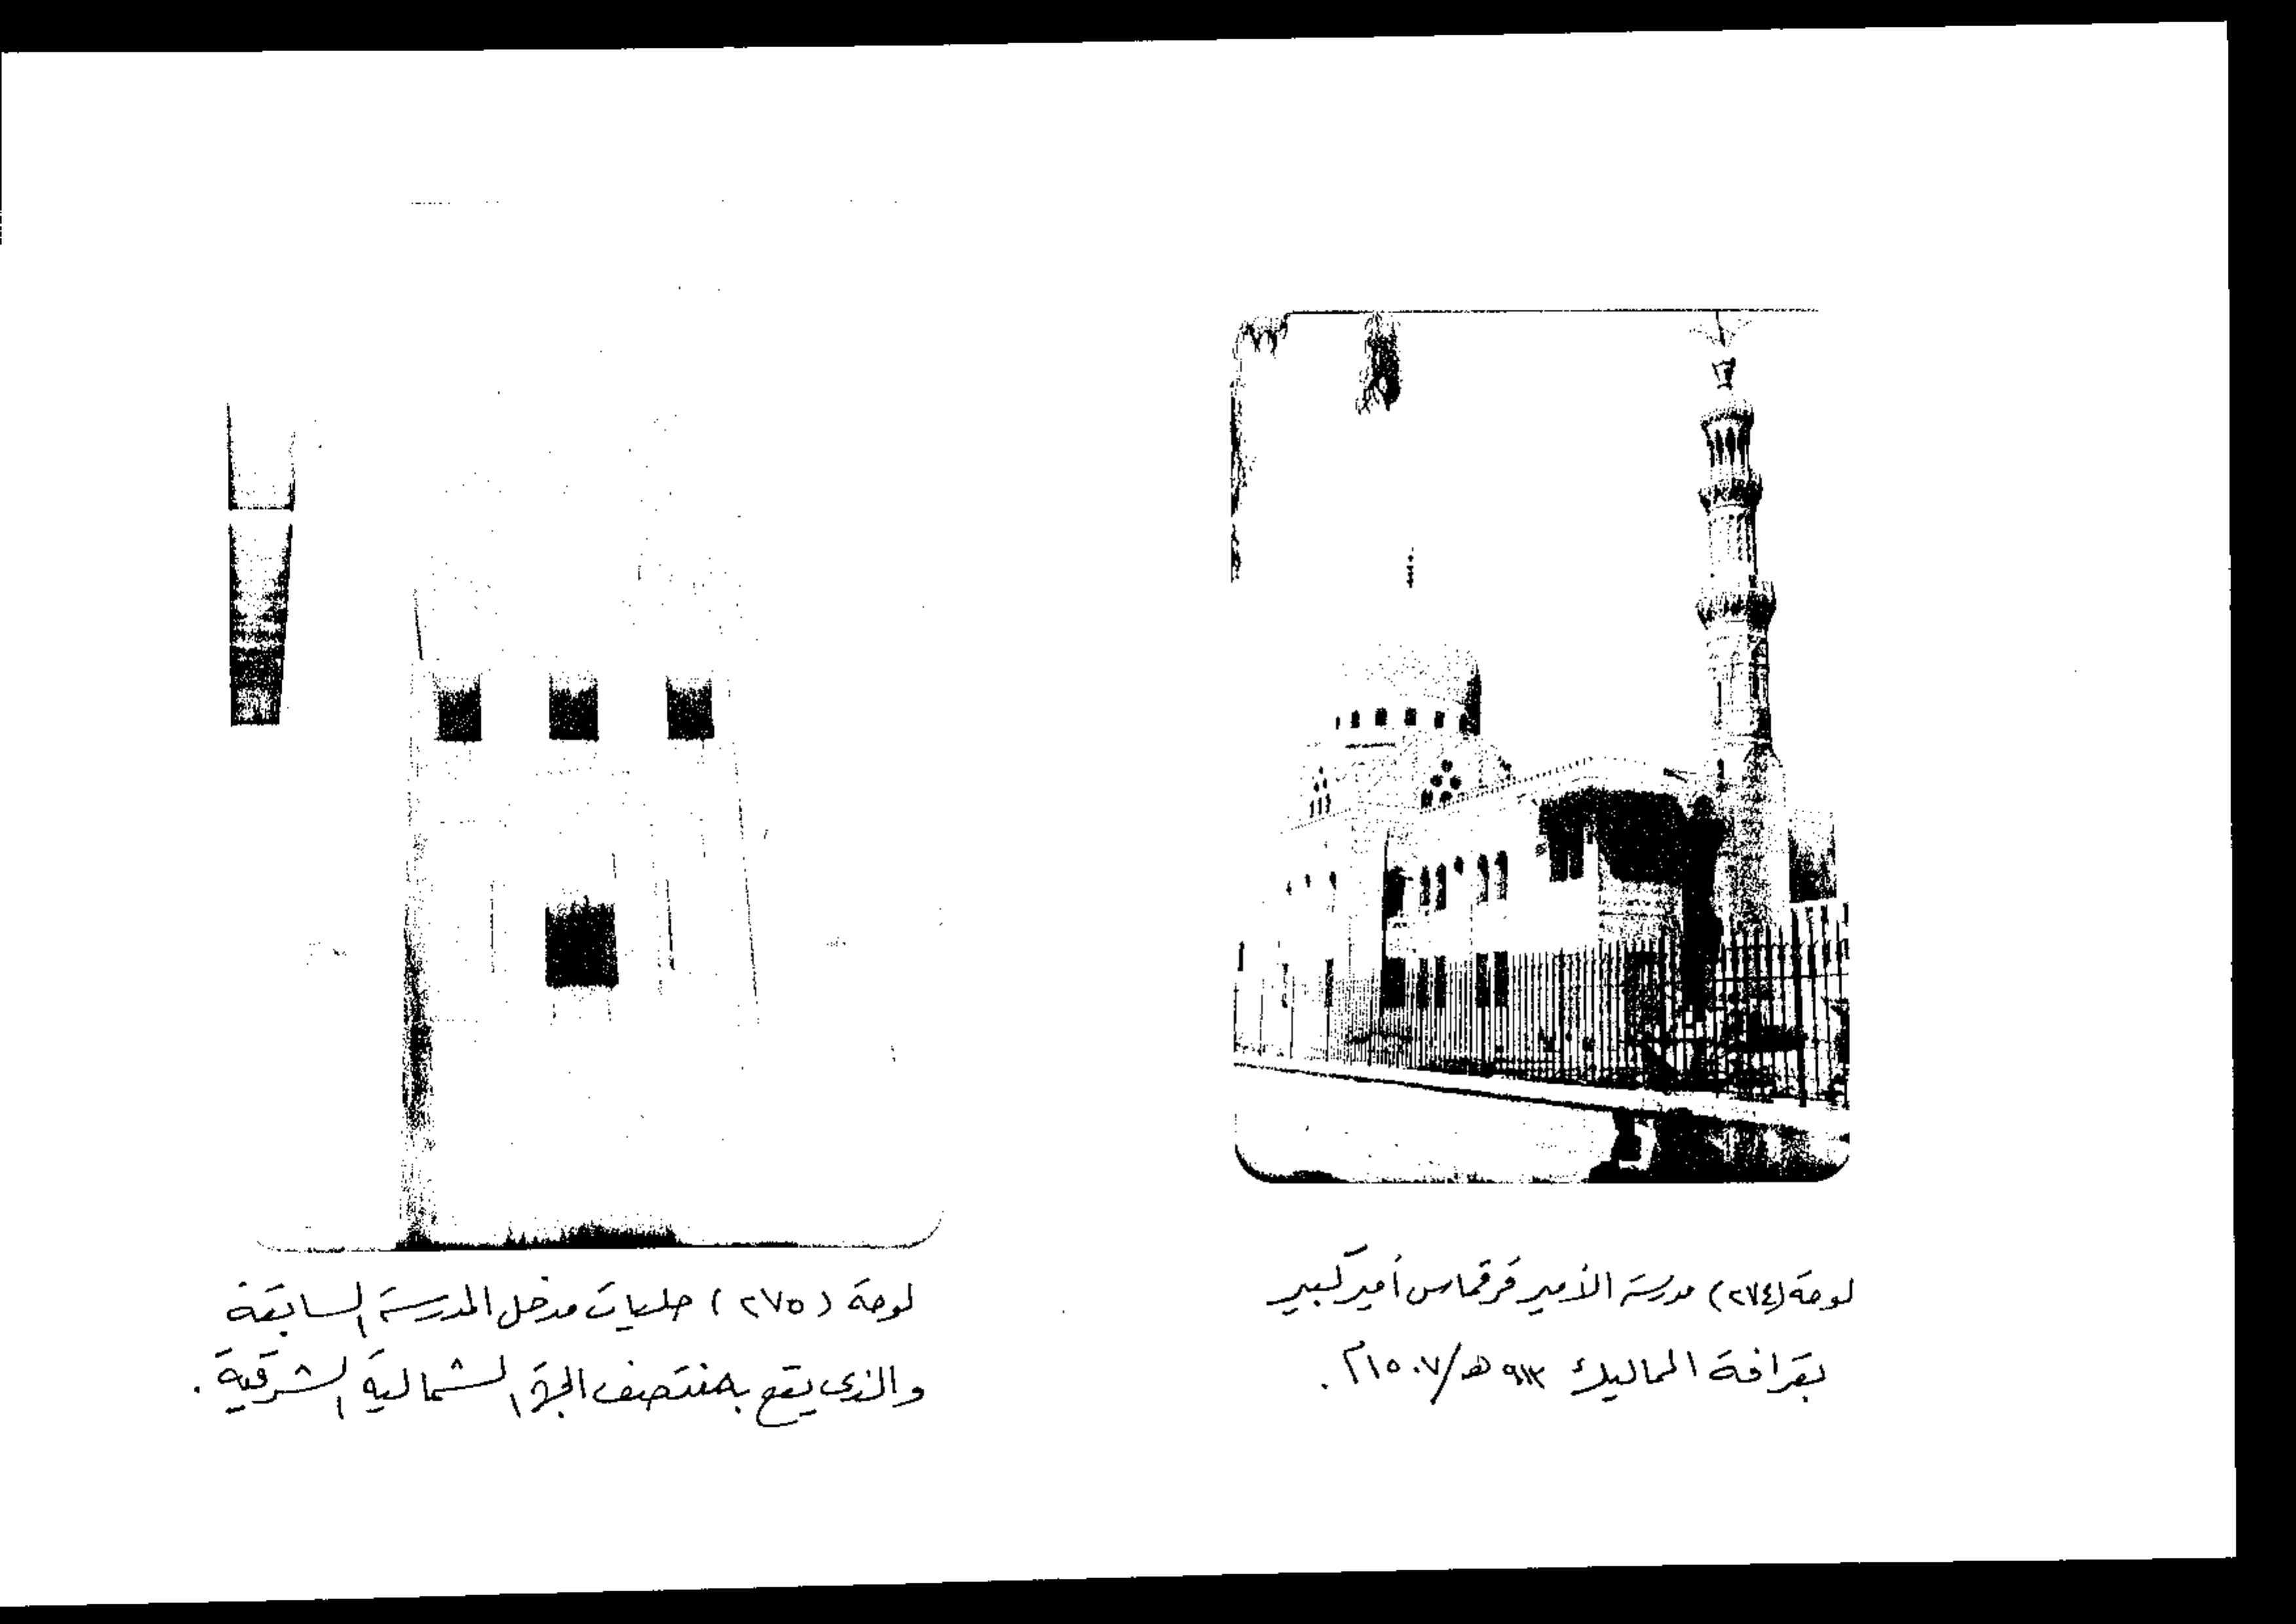 لوحة (٢٧٤) مدرسة الأمير قرقماس أمير كبير
بقرافة المماليك ٩١٣ هـ/١٥٠٧م.
لوحة (٢٧٥) حليات مدخل المدرسة السابقة
والذى يقع بمنتصف الجهة الشمالية الشرقية.